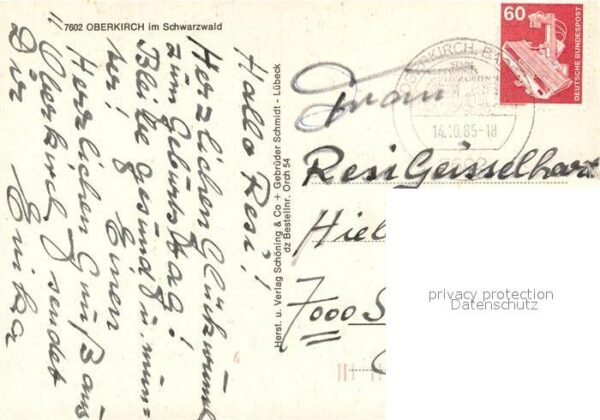 7602 OBERKIRCH im Schwarzwald
Hallo Resi!
Herzlichen Glückwunsch
zum Geburtstag!
Bleibe gesund u. mun-
ter! Einen
Herzlichen Gruß aus
Oberkirch sendet
Dir
Herst. u. Verlag Schöning & Co + Gebrüder Schmidt - Lübeck
dz Bestellnr. Orch 54
OBERKIRCH, BA
STADT
14.10.85-18
60
DEUTSCHE BUNDESPOST
Frau
Resi Geisselhardt
Hiel
7000 S
privacy protection
Datenschutz
4